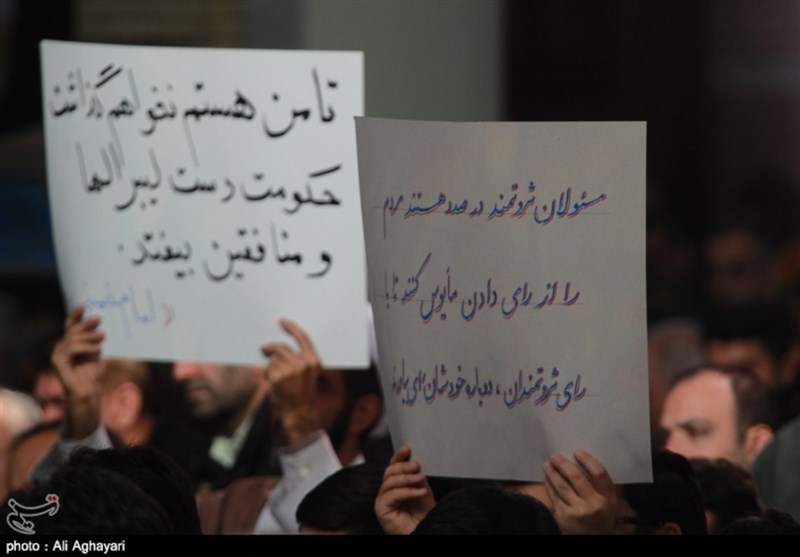 تا من هستم نخواهم گذاشت
حکومت دست لیبرالها
و منافقین بیفتد.
مسئولان ثروتمند در صدد هستند مردم
را از رای دادن مأیوس کنند تا با
رای ثروتمندان، دوباره خودشان رای بیاورند
تسنیم
photo : Ali Aghayari